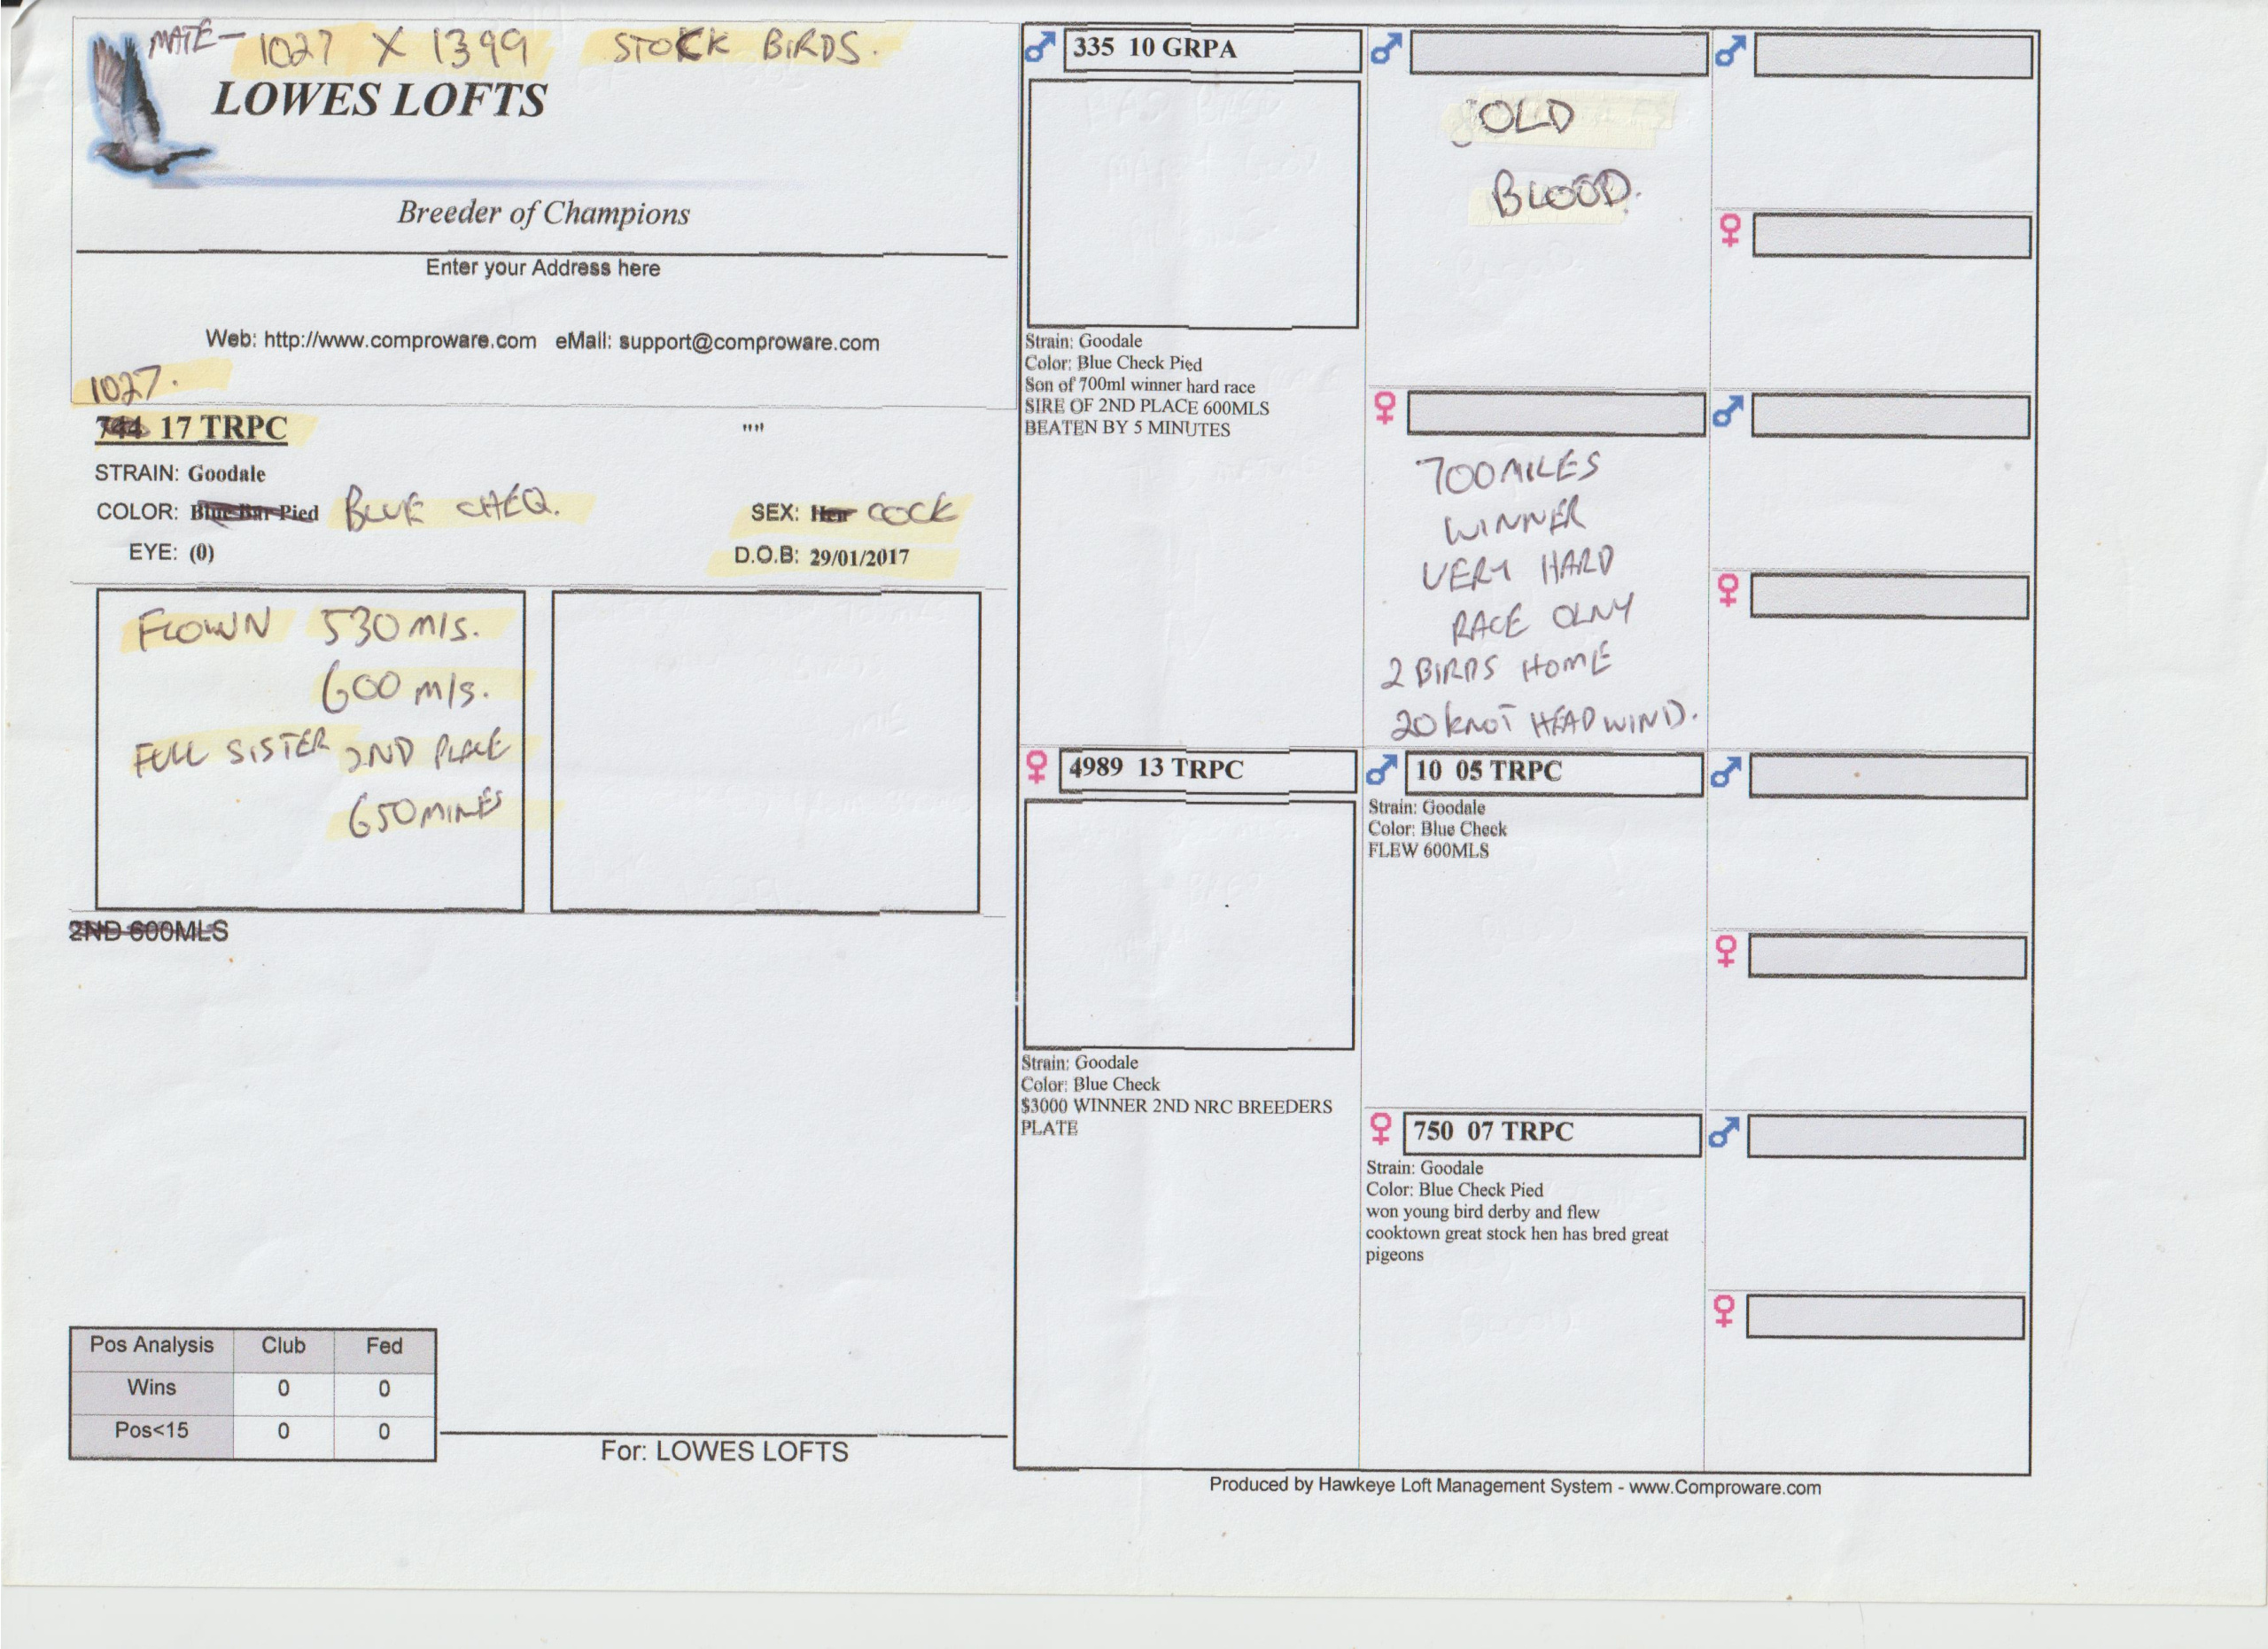 MATE - 1027 X 1399 STOCK BIRDS.
LOWES LOFTS
Breeder of Champions
Enter your Address here
Web: http://www.comproware.com eMail: support@comproware.com
1027.
744 17 TRPC
""
STRAIN: Goodale
COLOR: Blue Bar Pied BLUE CHEQ.
SEX: Hen COCK
EYE: (0)
D.O.B: 29/01/2017
FLOWN 530 M/S.
600 M/S.
FULL SISTER 2ND PLACE
650 MILES
2ND 600MLS
Pos Analysis Club Fed
Wins 0 0
Pos<15 0 0
For: LOWES LOFTS
335 10 GRPA
Strain: Goodale
Color: Blue Check Pied
Son of 700ml winner hard race
SIRE OF 2ND PLACE 600MLS
BEATEN BY 5 MINUTES
4989 13 TRPC
Strain: Goodale
Color: Blue Check
$3000 WINNER 2ND NRC BREEDERS
PLATE
OLD
BLOOD.
700 MILES
WINNER
VERY HARD
RACE OLNY
2 BIRDS HOME
20 KNOT HEADWIND.
10 05 TRPC
Strain: Goodale
Color: Blue Check
FLEW 600MLS
750 07 TRPC
Strain: Goodale
Color: Blue Check Pied
won young bird derby and flew
cooktown great stock hen has bred great
pigeons
Produced by Hawkeye Loft Management System - www.Comproware.com